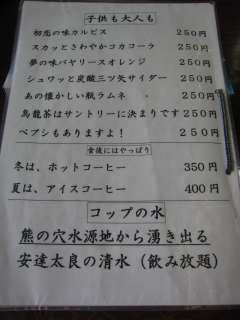 子供も大人も
初恋の味カルピス 250円
スカッとさわやかコカコーラ 250円
夢の味バヤリースオレンジ 250円
シュワッと炭酸三ツ矢サイダー 250円
あの懐かしい瓶ラムネ 250円
烏龍茶はサントリーに決まりです 250円
ペプシもありますよ! 250円
食後にはやっぱり
冬は、ホットコーヒー 350円
夏は、アイスコーヒー 400円
コップの水
熊の穴水源地から湧き出る
安達太良の清水(飲み放題)